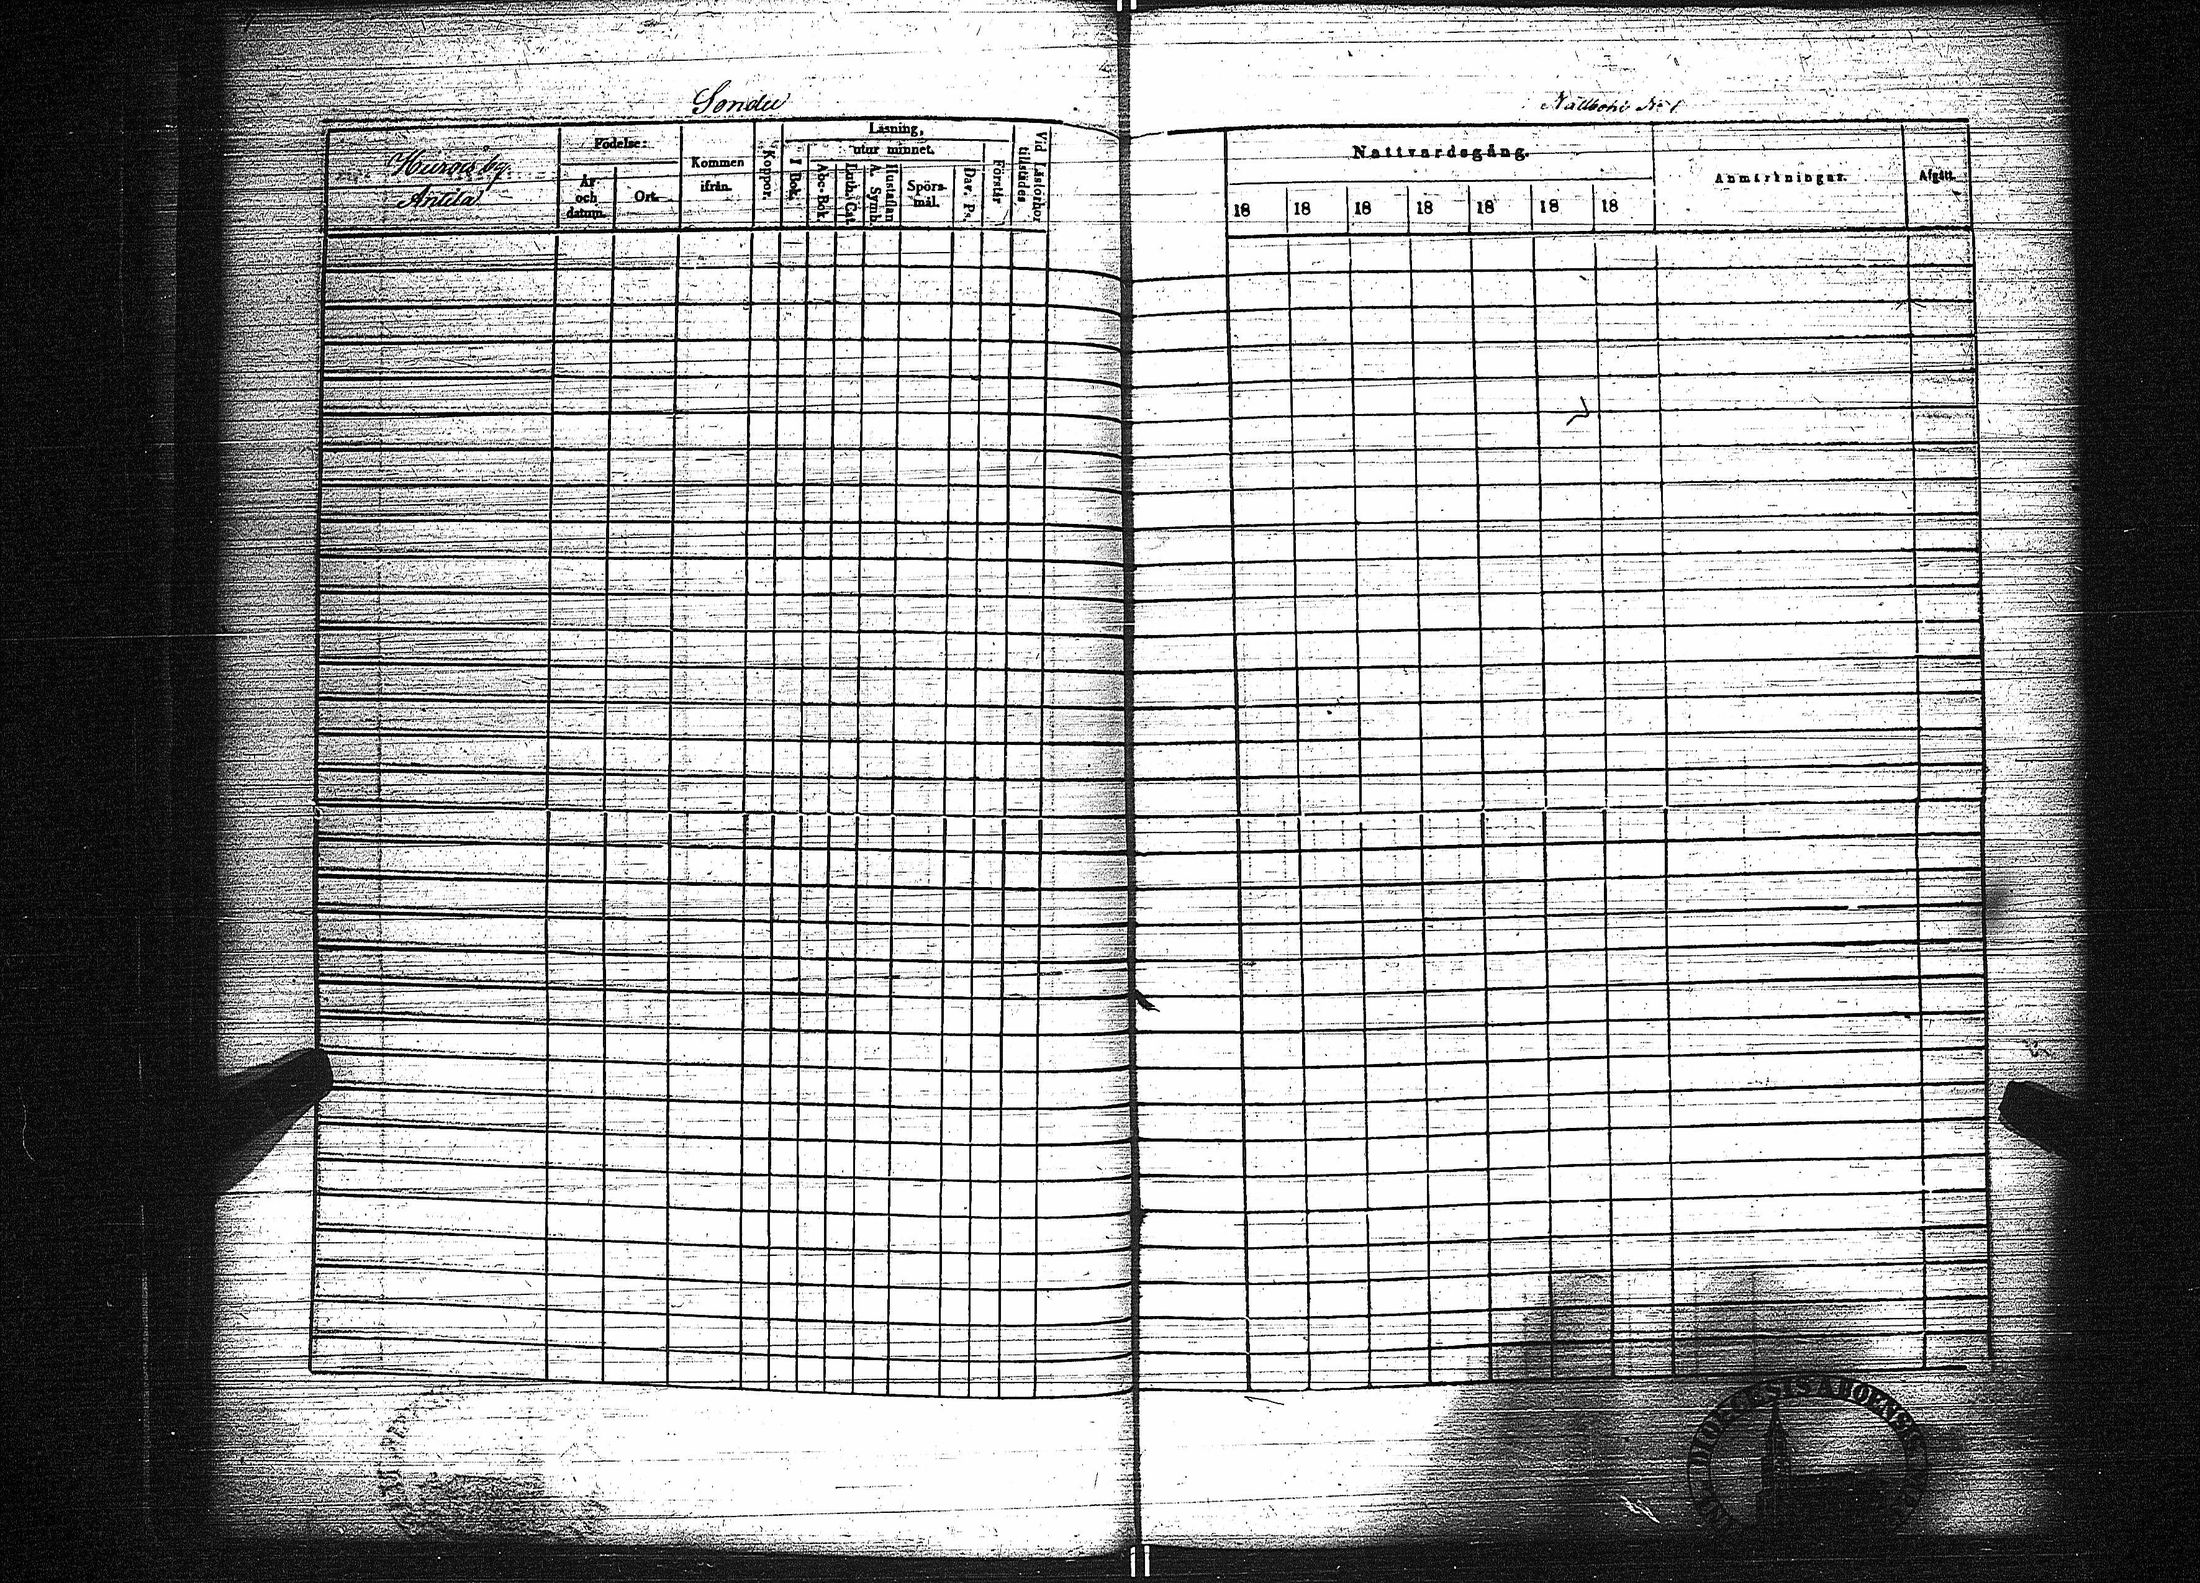 Sondu
Nallboni No 1
by.
Antila
Födelse:
År
och
datum.
Ort.
Kommen
ifrån.
Koppor.
Läsning,
utur minnet.
I Bok.
Abc-Bok.
Luth. Cat.
Hustaflan
A. Symb.
Spörs-
mål.
Dav. Ps.
Förstår
Vid Läsförhör
tillstädes
Nattvardsgång.
18 18 18 18 18 18 18
Anmärkningar.
Afgått.
DIOECESIS ABOENSIS